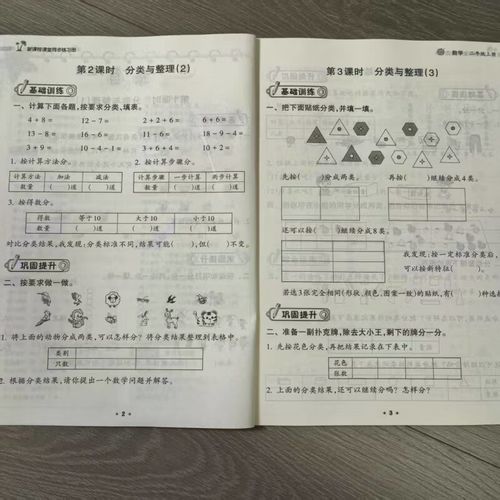 新课程课堂同步练习册
第2课时 分类与整理(2)
基础训练
一、计算下面各题,按要求分类,填表。
4+8= 12-7= 2+2+6= 6+6=
13-8= 16-6= 11-6= 18-9-4=
3+9= 10-4-1= 3+6+4= 10+2=
1. 按计算方法分。 2. 按计算步骤分。
计算方法 加法 减法 计算步骤 一步计算 两步计算
数量 ( )道 ( )道 数量 ( )道 ( )道
3. 按得数分。
得数 等于10 大于10 小于10
数量 ( )道 ( )道 ( )道
对比分类结果,我发现:分类标准不同,结果可能( ),但( )不变。
巩固提升
二、按要求做一做。
1. 将上面的动物分成两类,可以怎样分?将分类结果整理到表格中。
类别
只数
2. 根据分类结果,请你提出一个数学问题并解答。
• 2 •
数学 二年级上册
第3课时 分类与整理(3)
基础训练
一、把下面贴纸分类,并填一填。
先按( )分成两类。 再按( )继续分成4类。
还可以按( )继续分成8类。
我发现:按一定标准分类后,
可以按新特征( )。
若选3张完全相同(形状、颜色、图案一致)的贴纸,有( )种选
巩固提升
二、准备一副扑克牌,除去大小王,剩下的牌分一分。
1. 先按花色分类,再把结果记录在下表中。
花色
张数
2. 上面的分类结果,还可以继续分吗?怎样分?
• 3 •